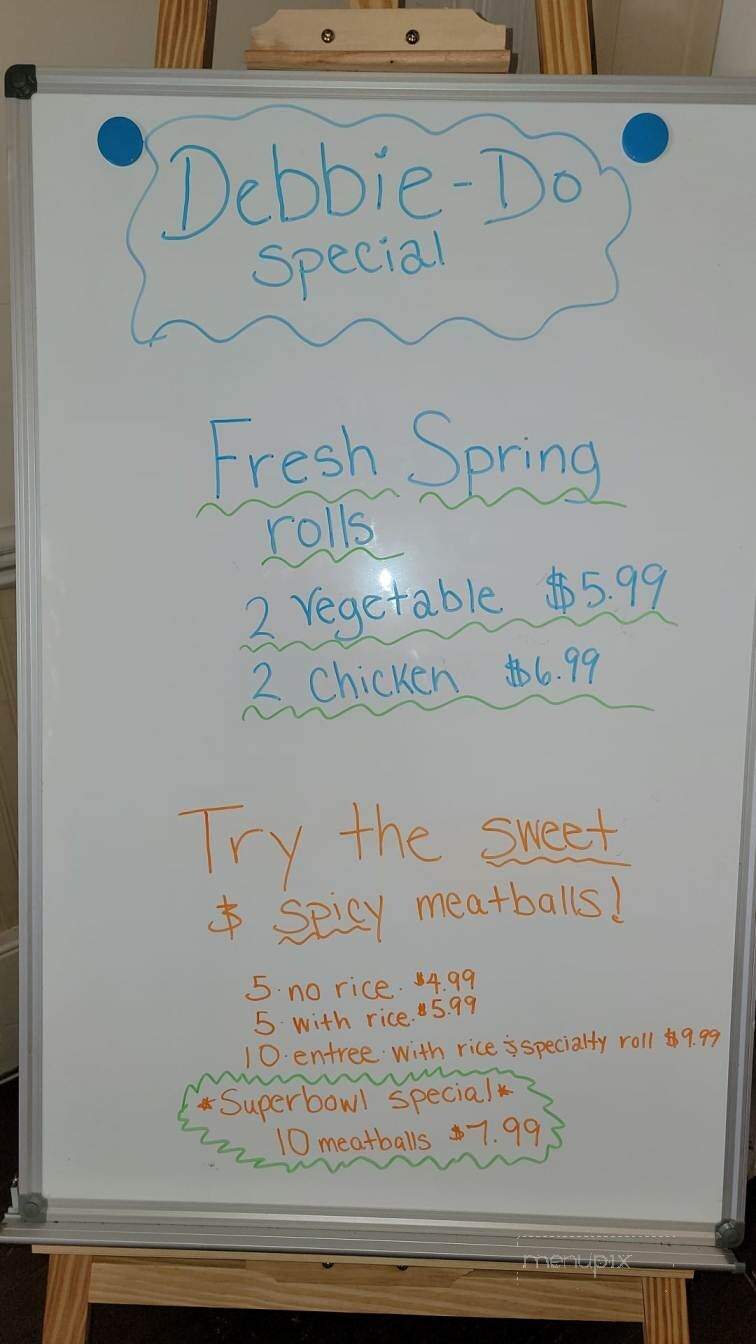 Debbie-Do
special
Fresh Spring
rolls
2 vegetable $5.99
2 chicken $6.99
Try the sweet
& spicy meatballs!
5 no rice $4.99
5 with rice $5.99
10 entree with rice & specialty roll $9.99
*Superbowl special*
10 meatballs $7.99
menupix